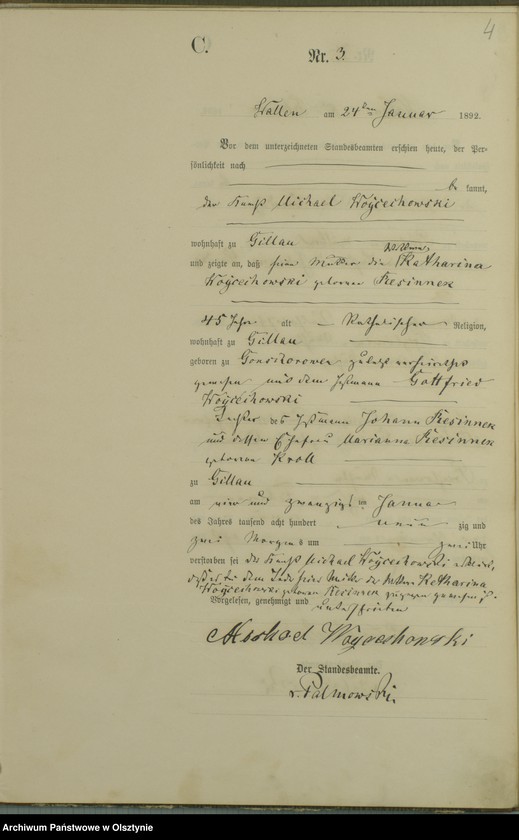 4
C.
Nr. 3.
Wallen am 24ten Januar 1892.
Vor dem unterzeichneten Standesbeamten erschien heute, der Per-
sönlichkeit nach
be kannt,
der Knecht Michael Woyciechowski
wohnhaft zu Gillau
und zeigte an, daß seine Mutter die Wittwe Katharina
Woyciechowski geborene Kesinnek
45 Jahr alt Katholischer Religion,
wohnhaft zu Gillau
geboren zu zuletzt verheirathet
gewesen mit dem Gottfried
Woyciechowski
Tochter des Johann Kesinnek
und dessen Ehefrau Marianna Kesinnek
geborene Kroll
zu Gillau
am vier und zwanzigsten Januar
des Jahres tausend acht hundert neun zig und
zwei Morgens um zwei Uhr
verstorben sei der Knecht Michael Woyciechowski
daß er bei dem Tode seiner Mutter der Wittwe Katharina
Woyciechowski geborene Kesinnek zugegen gewesen ist.
Vorgelesen, genehmigt und unterschrieben
Michael Woyciechowski
Der Standesbeamte.
v. Palmowski.
Archiwum Państwowe w Olsztynie